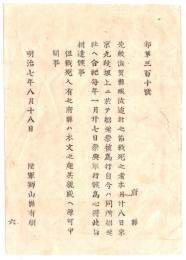 布第三百十號
府縣
先般佐賀縣賊徒追討之節戰死之者本月廿八日東
京九段坂上ニ於テ招魂祭被爲行自今ハ同所招魂
社ヘ合祀每年一月廿七日祭典執行被爲候條此旨
相達候事
但戰死人有之府縣ハ本文之趣其親戚ヘ懇可申
聞事
明治七年八月十八日
陸軍卿山縣有朋
六